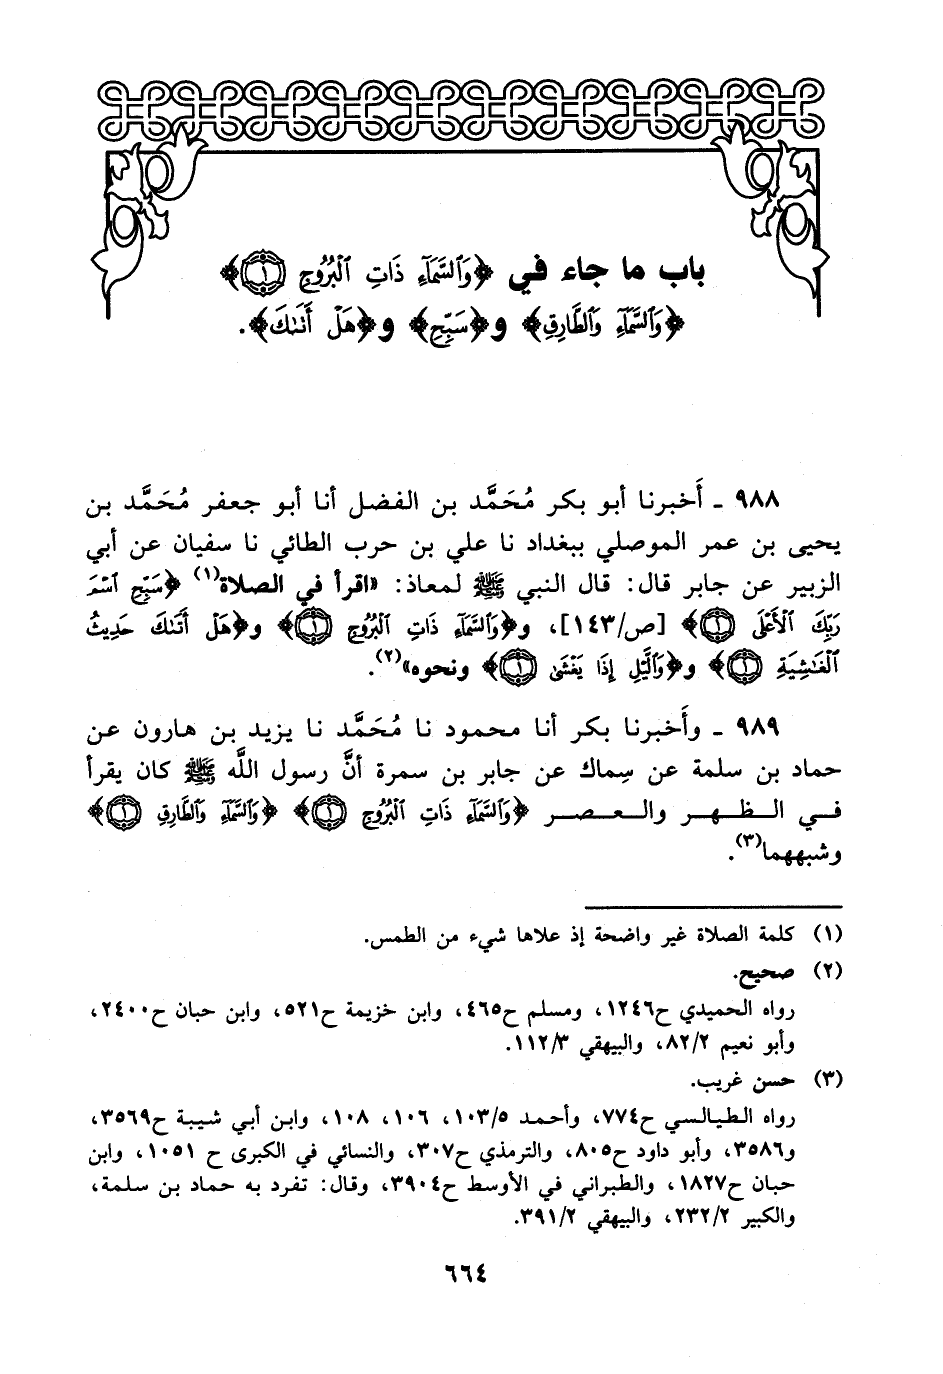 باب ما جاء في ﴿وَٱلسَّمَآءِ ذَاتِ ٱلۡبُرُوجِ ۝١﴾
﴿وَٱلسَّمَآءِ وَٱلطَّارِقِ﴾ و﴿سَبِّحِ﴾ و﴿هَلۡ أَتَىٰكَ﴾.
٩٨٨ ـ أَخبرنا أبو بكر مُحَمَّد بن الفضل أنا أبو جعفر مُحَمَّد بن
يحيى بن عمر الموصلي ببغداد نا علي بن حرب الطائي نا سفيان عن أبي
الزبير عن جابر قال: قال النبي ﷺ لمعاذ: «اقرأ في الصلاة(١) ﴿سَبِّحِ ٱسۡمَ
رَبِّكَ ٱلۡأَعۡلَى ۝١﴾ [ص/١٤٣]، و﴿وَٱلسَّمَآءِ ذَاتِ ٱلۡبُرُوجِ ۝١﴾ و﴿هَلۡ أَتَىٰكَ حَدِيثُ
ٱلۡغَٰشِيَةِ ۝١﴾ و﴿وَٱلَّيۡلِ إِذَا يَغۡشَىٰ ۝١﴾ ونحوه»(٢).
٩٨٩ ـ وأَخبرنا بكر أنا محمود نا مُحَمَّد نا يزيد بن هارون عن
حماد بن سلمة عن سِماك عن جابر بن سمرة أنَّ رسول اللَّه ﷺ كان يقرأ
في الظهر والعصر ﴿وَٱلسَّمَآءِ ذَاتِ ٱلۡبُرُوجِ ۝١﴾ ﴿وَٱلسَّمَآءِ وَٱلطَّارِقِ ۝١﴾
وشبههما(٣).
(١) كلمة الصلاة غير واضحة إذ علاها شيء من الطمس.
(٢) صحيح.
رواه الحميدي ح١٢٤٦، ومسلم ح٤٦٥، وابن خزيمة ح٥٢١، وابن حبان ح٢٤٠٠،
وأبو نعيم ٨٢/٢، والبيهقي ١١٢/٣.
(٣) حسن غريب.
رواه الطيالسي ح٧٧٤، وأحمد ١٠٣/٥، ١٠٦، ١٠٨، وابن أبي شيبة ح٣٥٦٩،
و٣٥٨٦، وأبو داود ح٨٠٥، والترمذي ح٣٠٧، والنسائي في الكبرى ح ١٠٥١، وابن
حبان ح١٨٢٧، والطبراني في الأوسط ح٣٩٠٤، وقال: تفرد به حماد بن سلمة،
والكبير ٢٣٢/٢، والبيهقي ٣٩١/٢.
٦٦٤